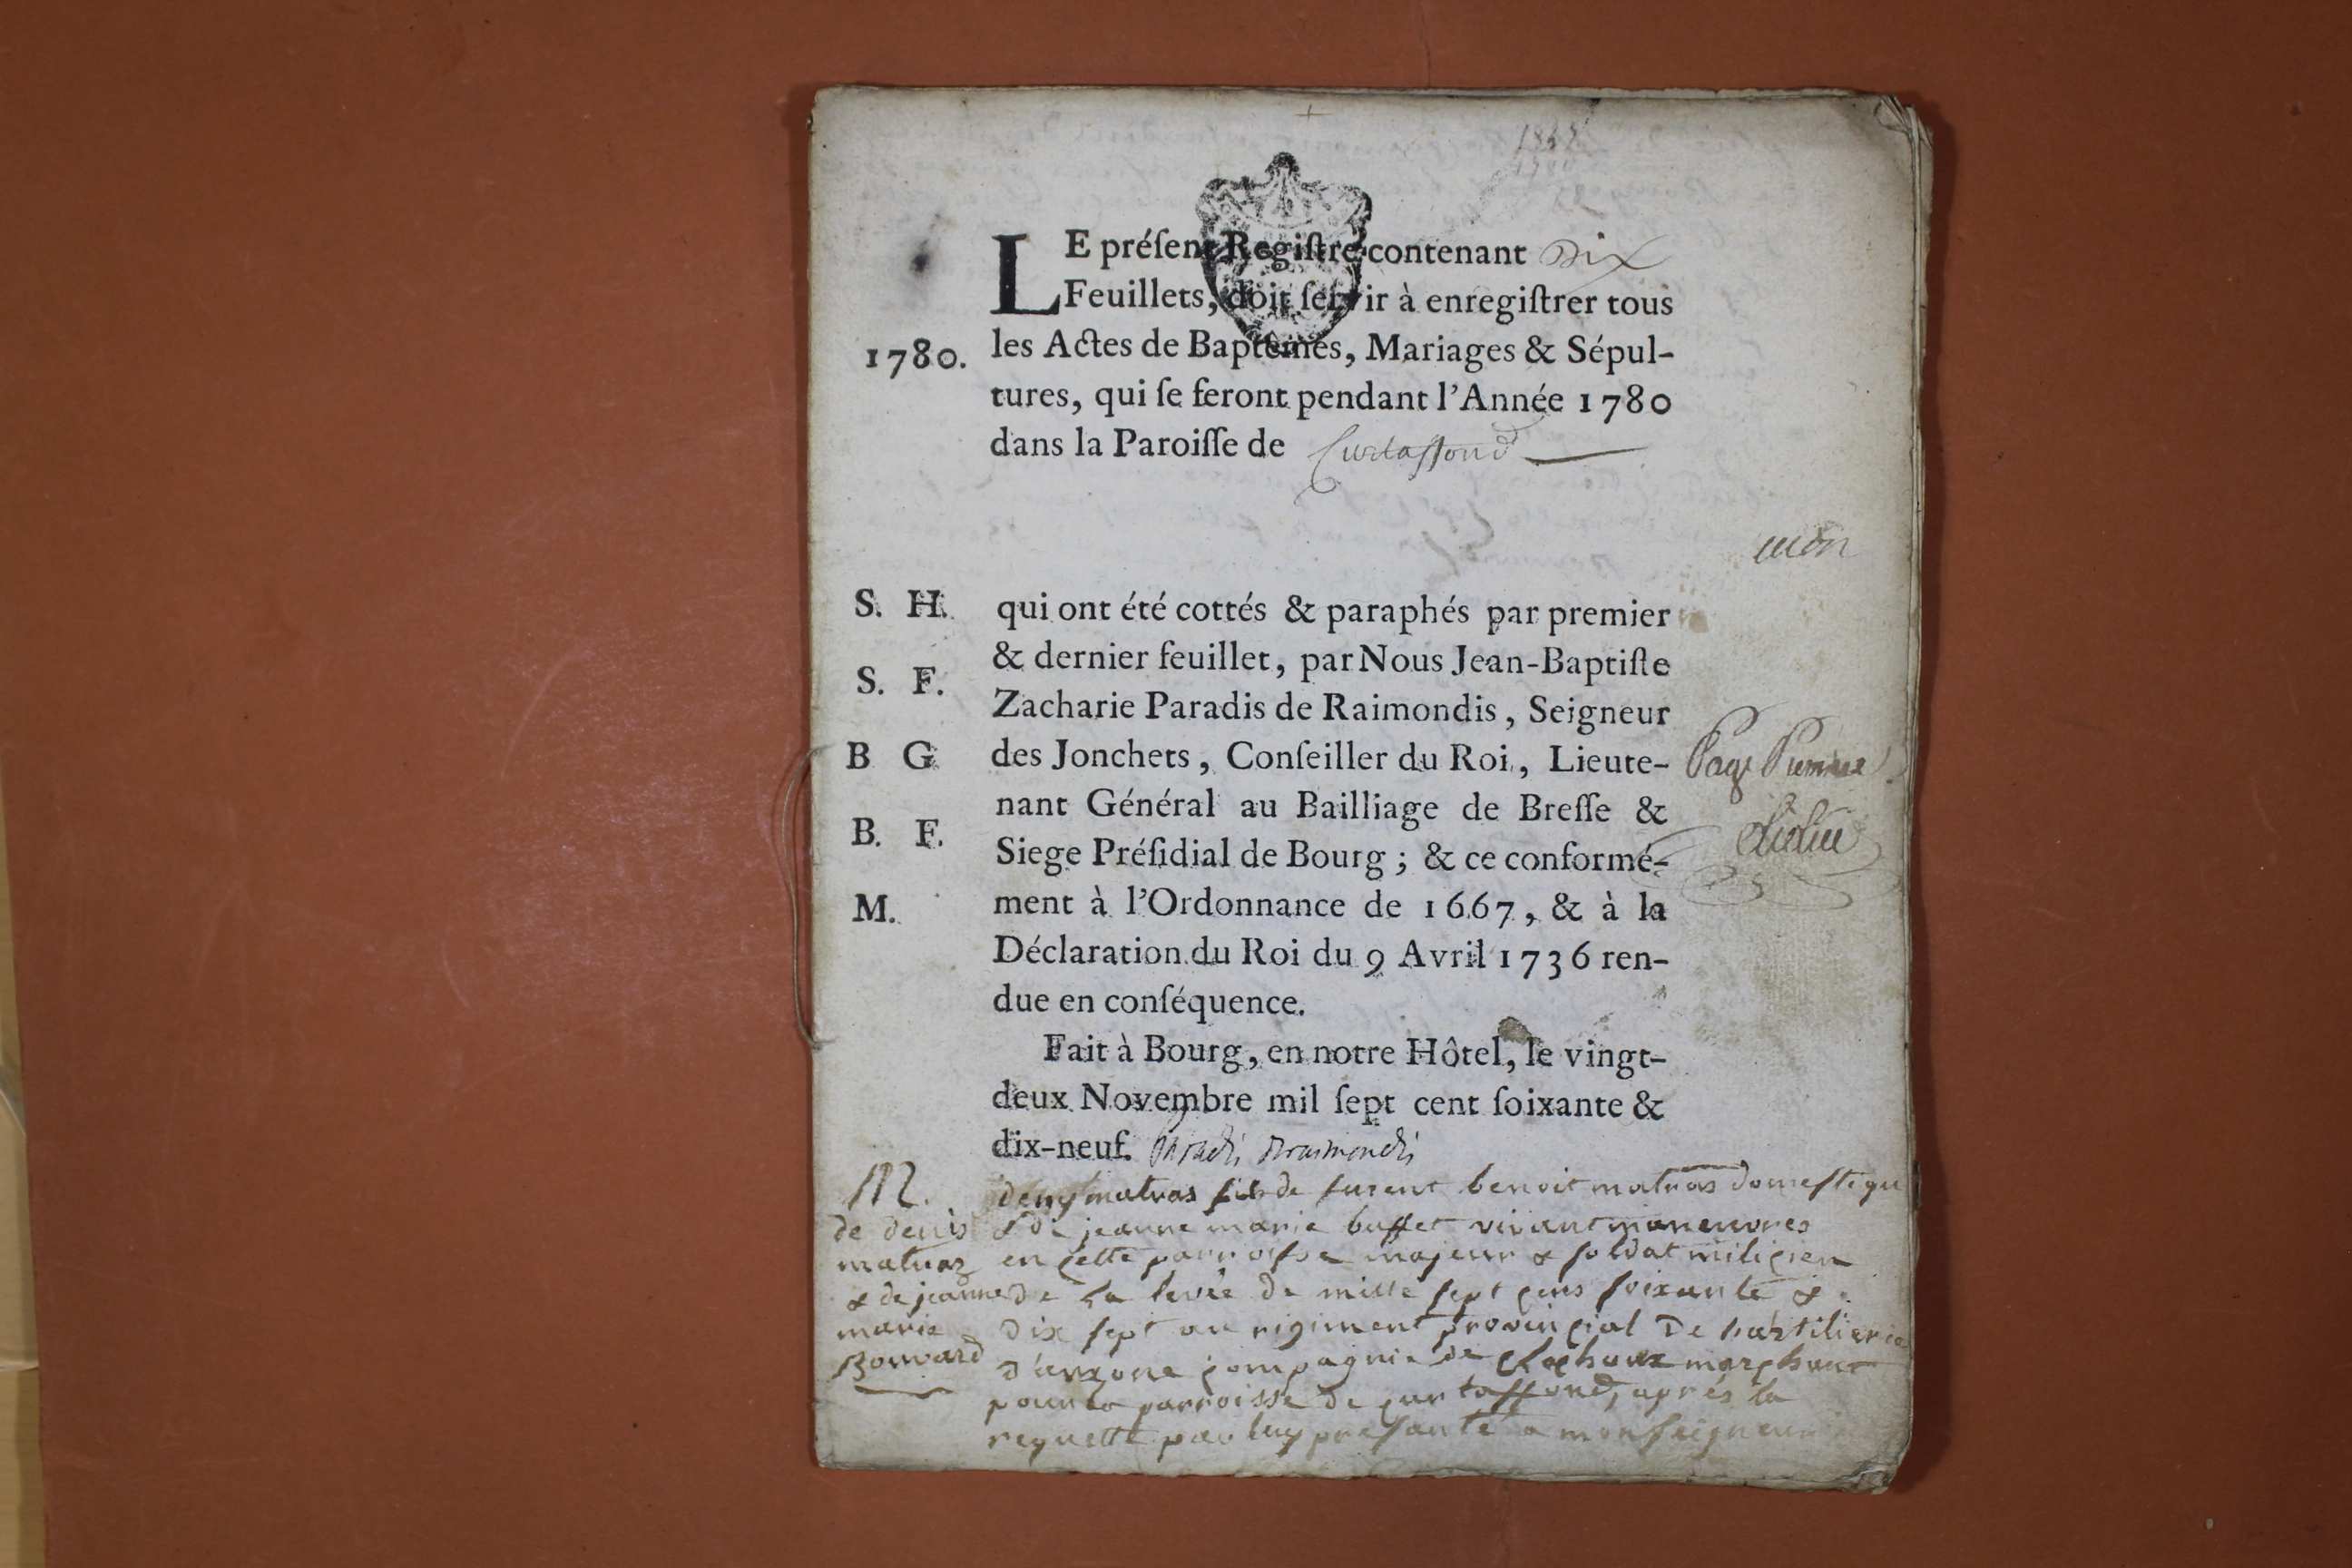 LE préſent Regiſtre contenant Dix
Feuillets, doit ſervir à enregiſtrer tous
1780. les Actes de Baptêmes, Mariages & Sépul-
tures, qui ſe feront pendant l'Année 1780
dans la Paroiſſe de Curtaffond
S. H. qui ont été cottés & paraphés par premier
& dernier feuillet, par Nous Jean-Baptiſte
S. F.
Zacharie Paradis de Raimondis, Seigneur
B G des Jonchets, Conſeiller du Roi, Lieute-
Page Premiere
nant Général au Bailliage de Breſſe &
B. F.
Siege Préſidial de Bourg; & ce conformé-
M. ment à l'Ordonnance de 1667, & à la
Déclaration du Roi du 9 Avril 1736 ren-
due en conſéquence.
Fait à Bourg, en notre Hôtel, le vingt-
deux Novembre mil ſept cent ſoixante &
dix-neuf. Paradis Deraimondis
M.
de denis
matras
& de jeanne
marie
Bonnard
deny matras fils de furent benoit matras domestique
& de jeanne marie buffet vivant manœuvres
en cette parroisse majeur & soldat milicien
de la levée de mille sept cens soixante &
dix sept au regiment provincial De l'artilierie
compagnie de marchant
pour la parroisse de curtaffond, aprés la
requette par luy presanté a monseigneur